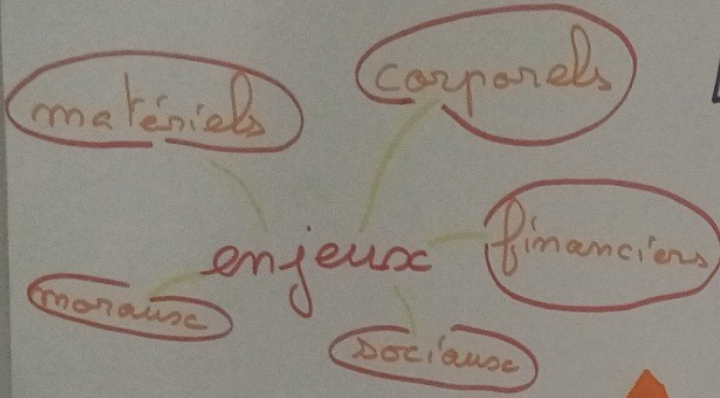 matériels
corporels
enjeux
financiers
moraux
sociaux